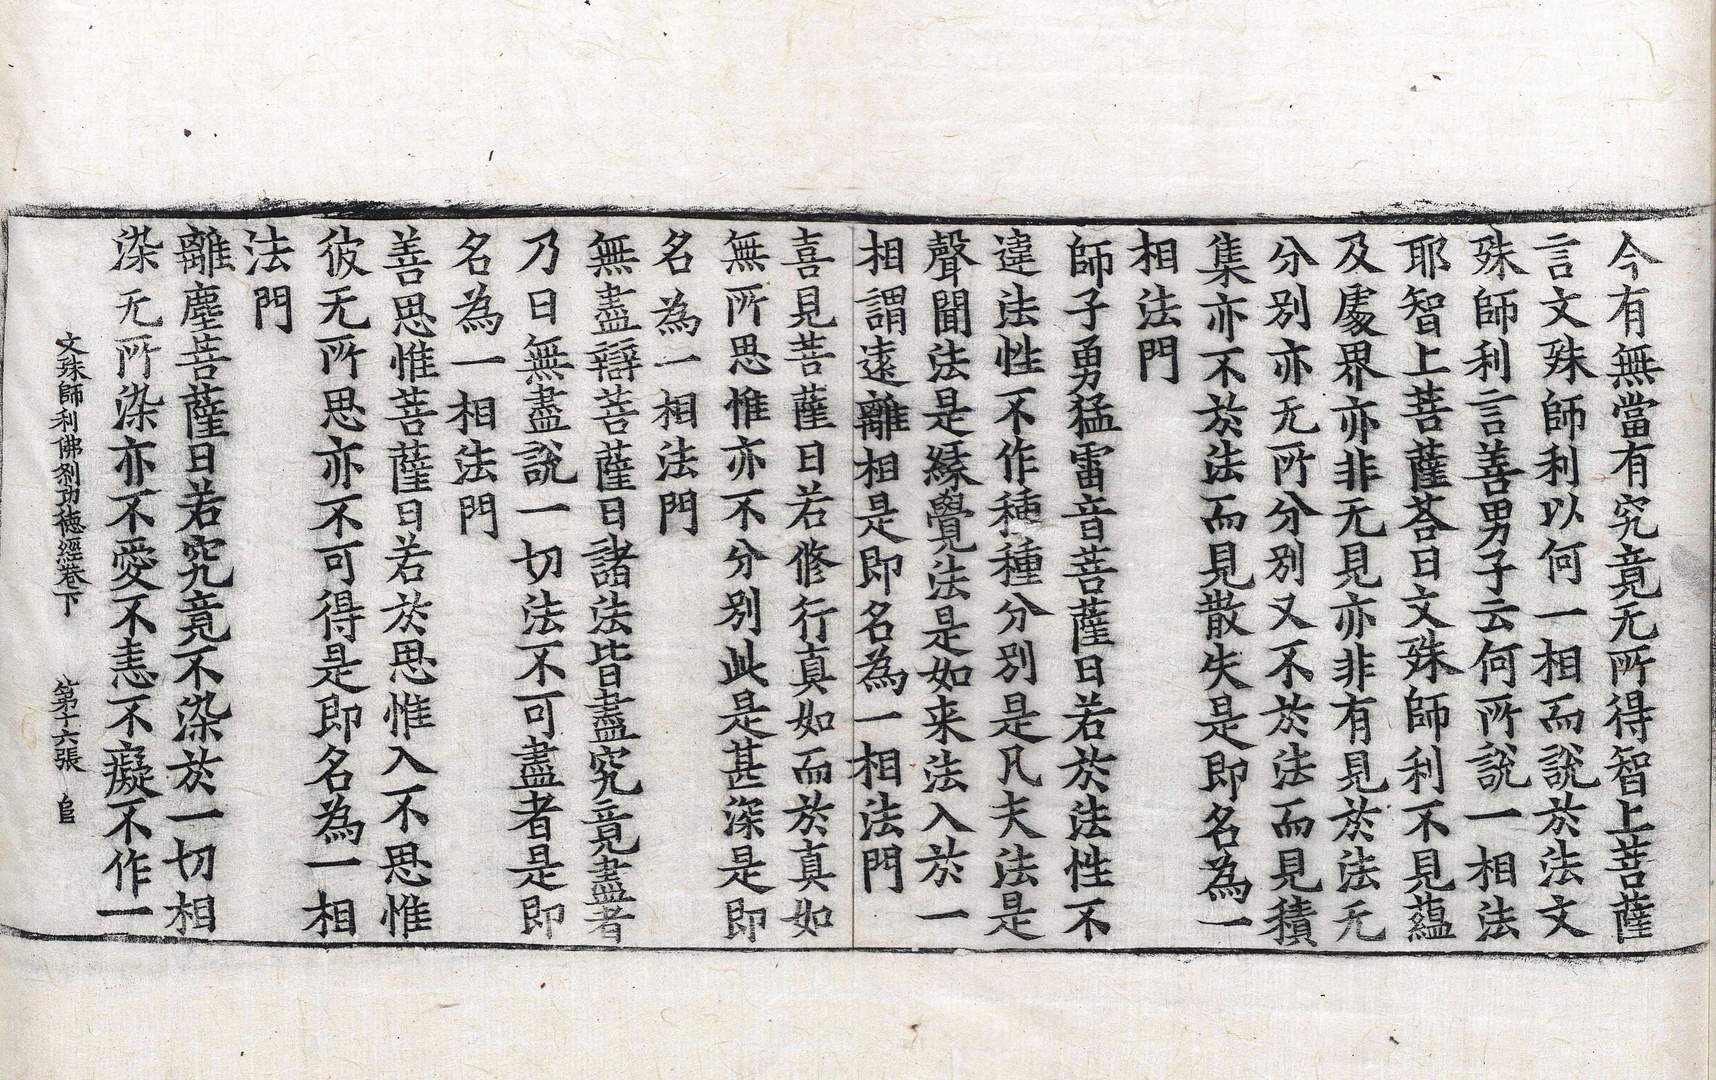 今有無當有究竟无所得智上菩薩
言文殊師利以何一相而說於法文
殊師利言善男子云何所說一相法
耶智上菩薩荅曰文殊師利不見蘊
及處界亦非无見亦非有見於法无
分別亦无所分別又不於法而見積
集亦不於法而見散失是即名為一
相法門
師子勇猛雷音菩薩曰若於法性不
違法性不作種種分別是凡夫法是
聲聞法是緣覺法是如来法入於一
相謂遠離相是即名為一相法門
喜見菩薩曰若修行真如而於真如
無所思惟亦不分別此是甚深是即
名為一相法門
無盡辯菩薩曰諸法皆盡究竟盡者
乃曰無盡說一切法不可盡者是即
名為一相法門
善思惟菩薩曰若於思惟入不思惟
彼无所思亦不可得是即名為一相
法門
離塵菩薩曰若究竟不染於一切相
染无所染亦不愛不恚不癡不作一
文殊師利佛刹功德經卷下 第十六張 㠯